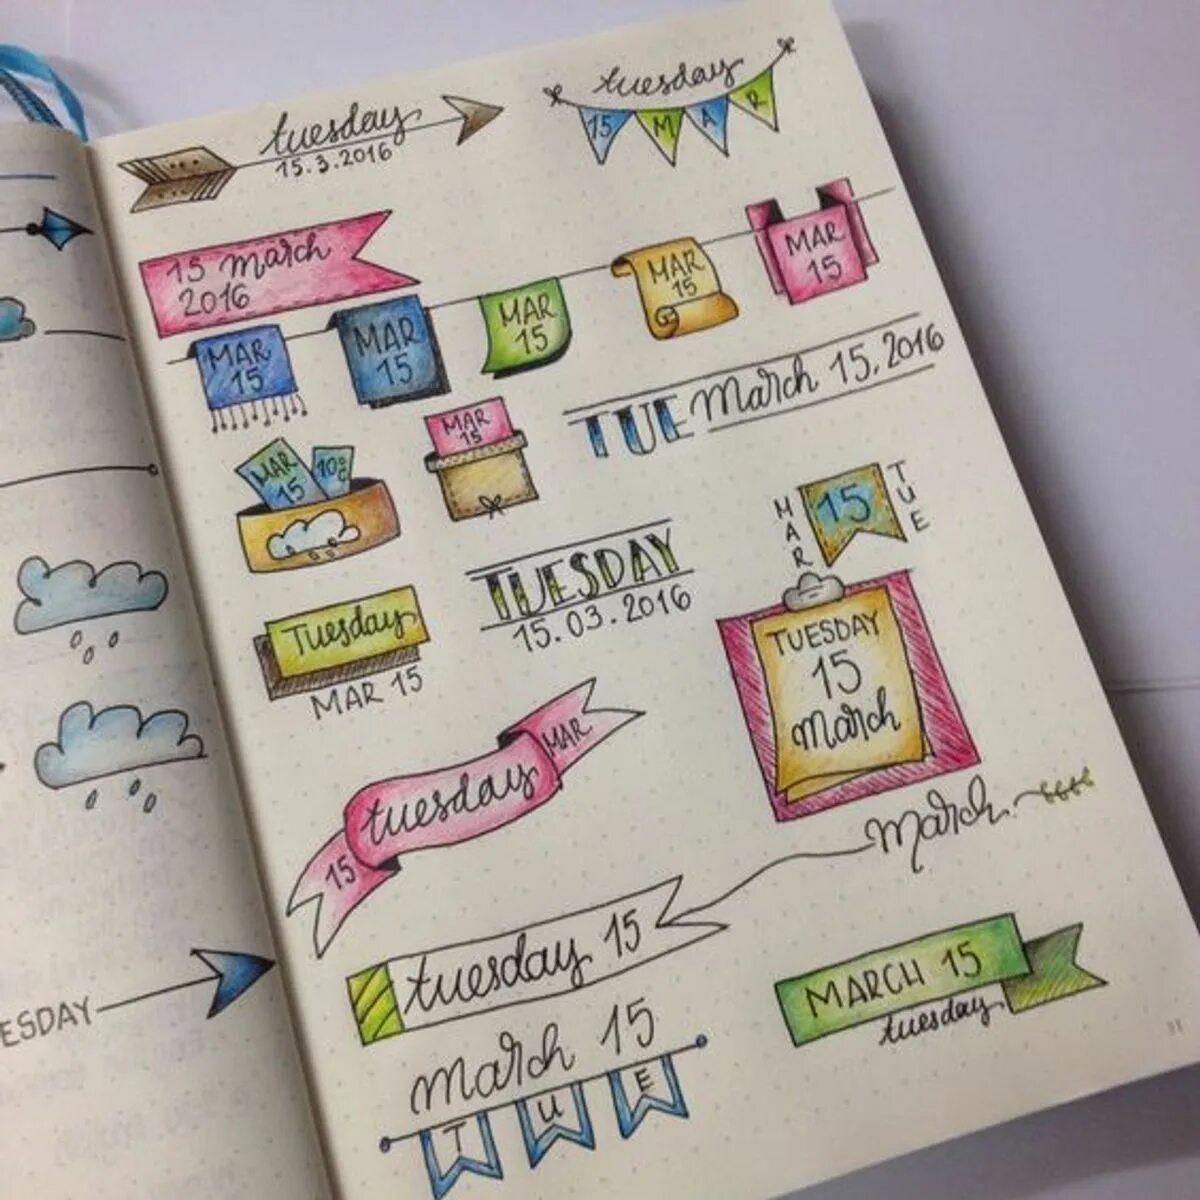 tuesday
15.3.2016
tuesday
15 MAR
15 march
2016
MAR
15
MAR
15
MAR
15
MAR
15
MAR
15
TUE March 15, 2016
MAR
15
MAR
15
10°C
MAR
15
TUE
TUESDAY
15.03.2016
Tuesday
MAR 15
TUESDAY
15
March
15 tuesday MAR
march
tuesday 15
MARCH 15
tuesday
march 15
TUE
ESDAY
11